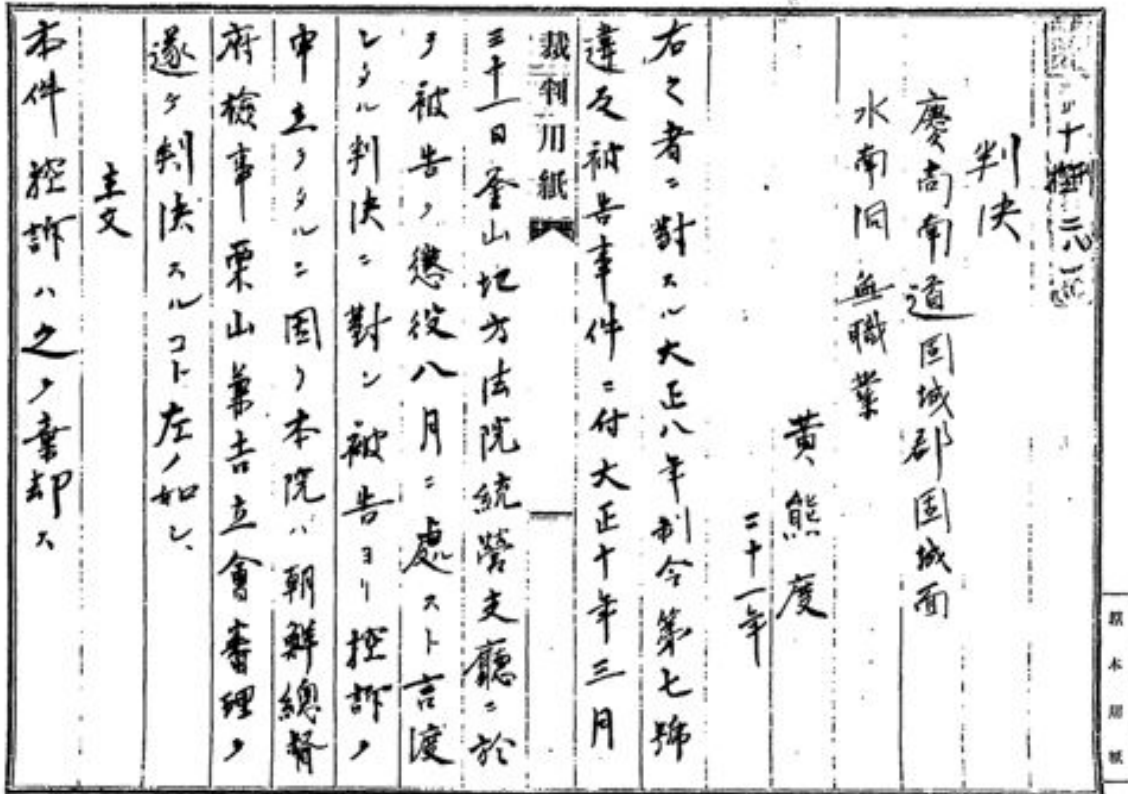 十
判決
慶尚南道固城郡固城面
水南洞無職業
黃熊度
二十一年
右之者ニ對スル大正八年制令第七號
違反被告事件ニ付大正十年三月
裁判用紙
三十一日釜山地方法院統營支廳ニ於
テ被告ヲ懲役八月ニ處スト言渡
シタル判決ニ對シ被告ヨリ控訴ノ
申立アタルニ因リ本院ハ朝鮮總督
府檢事栗山兼吉立會審理ヲ
遂ケ判決スルコト左ノ如シ
主文
本件控訴ハ之ヲ棄却ス